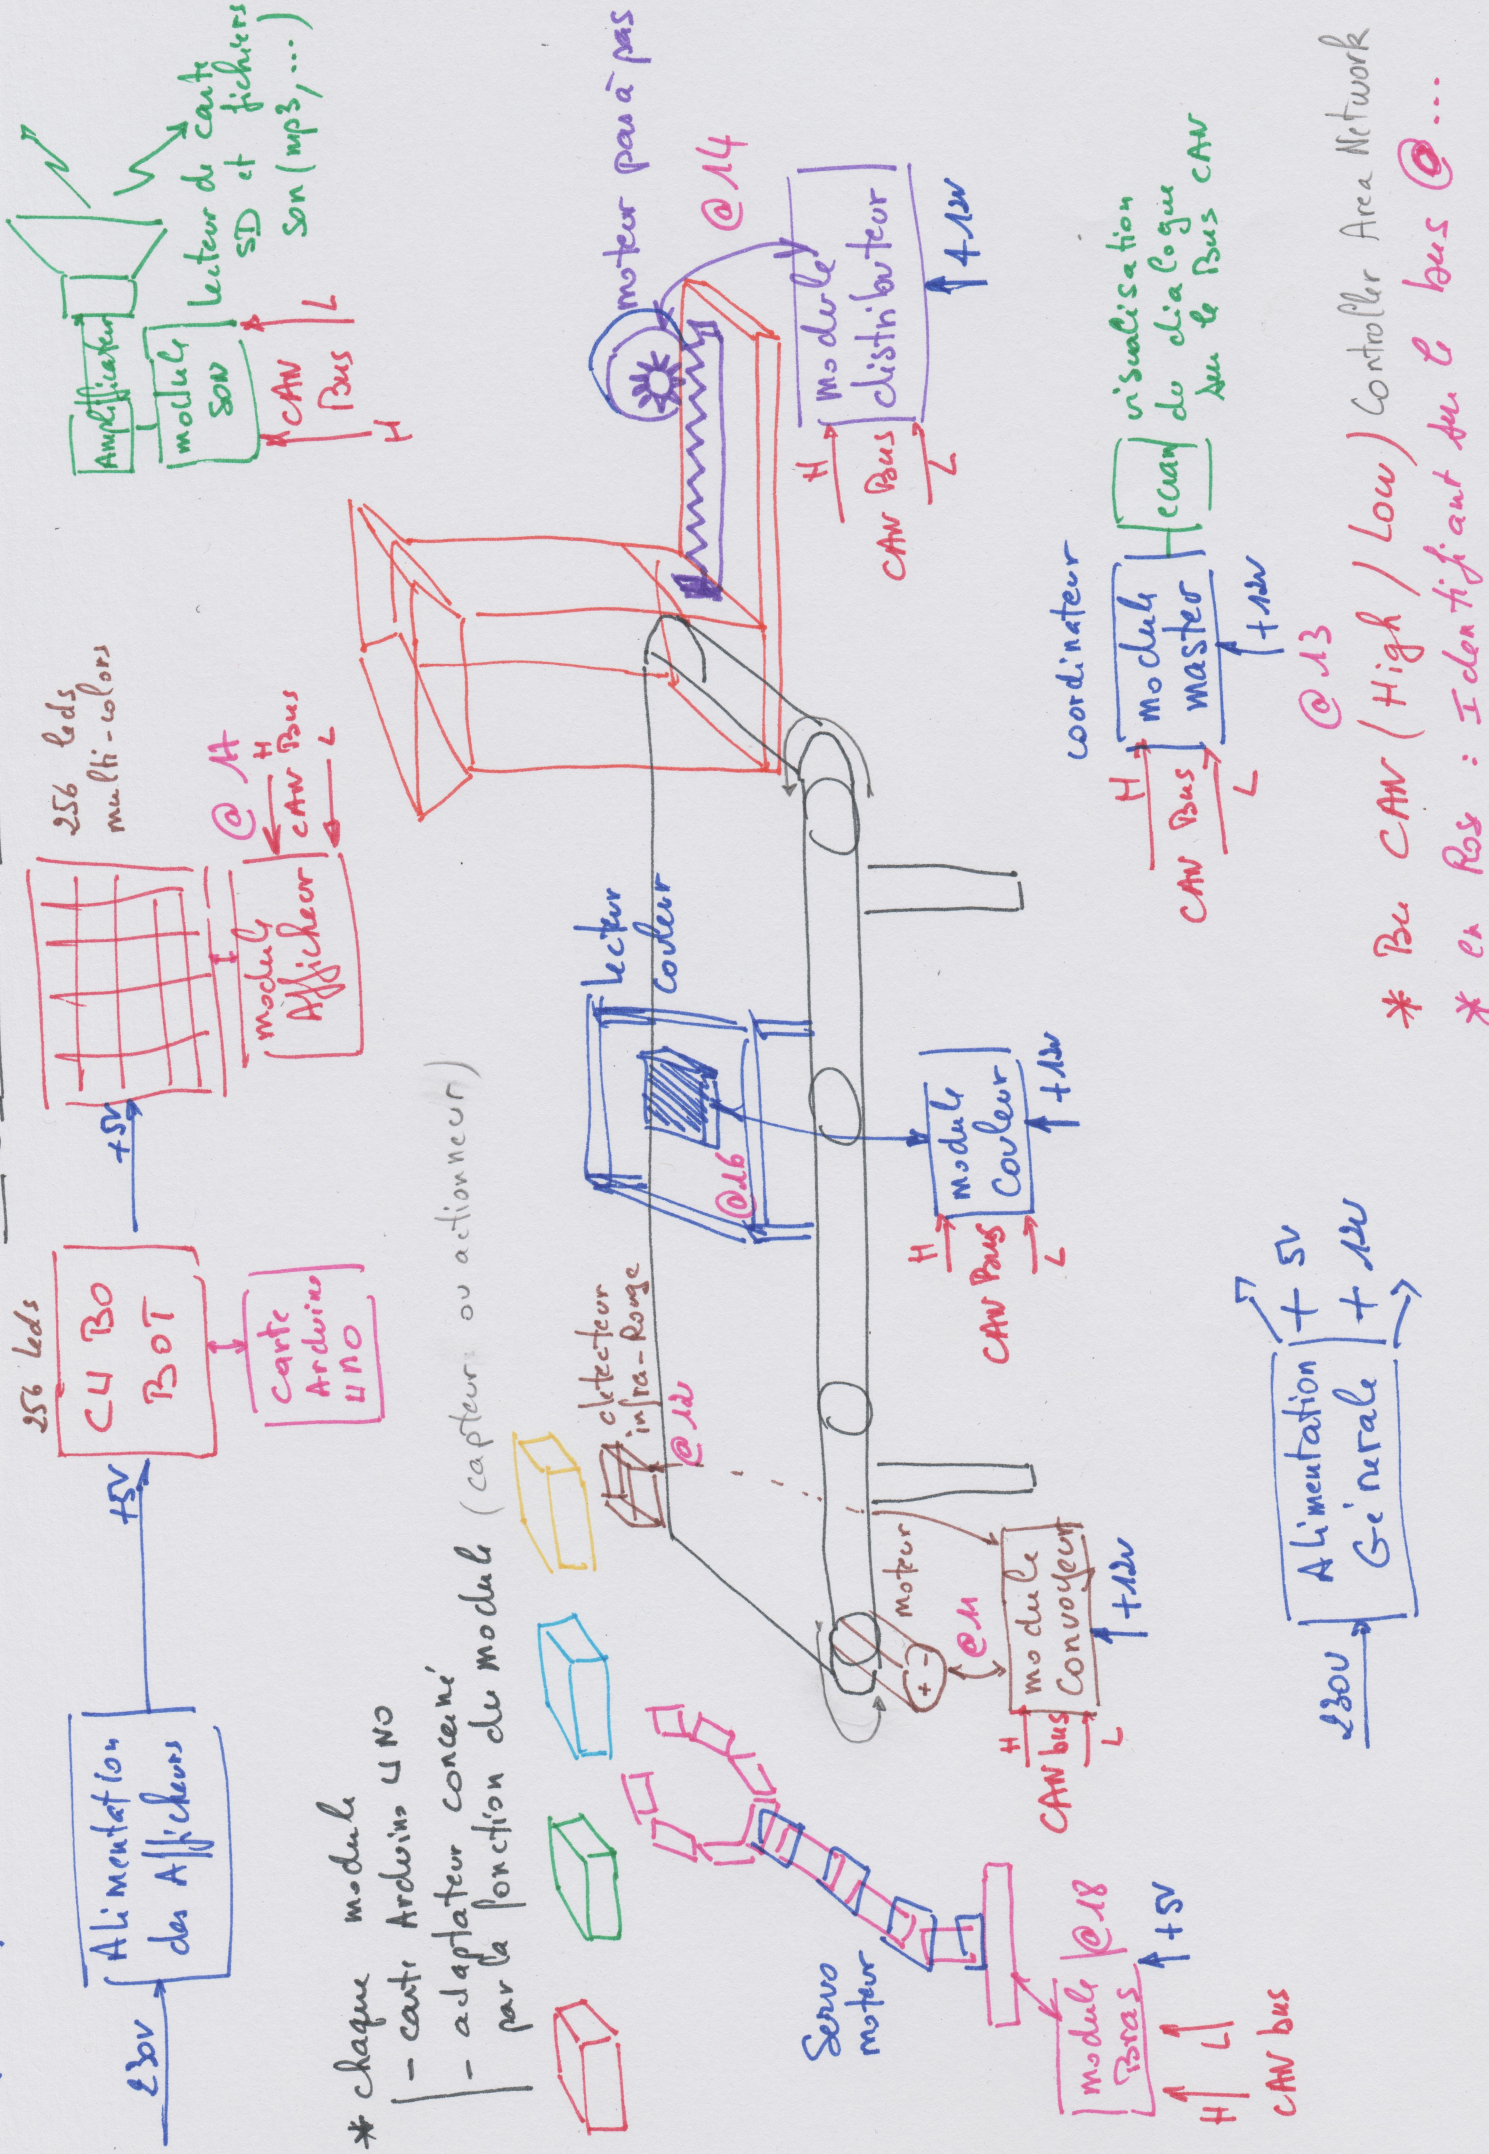 230V
Alimentation
des Afficheurs
+5V
256 leds
CU BO
BOT
Carte
Arduino
UNO
+5V
256 leds
multi-colors
module
Afficheur
@ 17
H
CAN Bus
L
Amplificateur
module
SON
CAN
Bus
H
L
lecteur de carte
SD et fichiers
son (mp3, ...)
* chaque module
- carte Arduino UNO
- adaptateur concerné
par la fonction du module (capteur ou actionneur)
détecteur
infra-Rouge
@ 12
lecteur
couleur
@16
moteur pas à pas
@ 14
module
distributeur
+12V
H
CAN Bus
L
Servo
moteur
module
Bras
@18
+5V
H L
CAN bus
moteur
+ -
@11
module
convoyeur
+12V
H
CAN bus
L
module
Couleur
+12V
H
CAN Bus
L
coordinateur
module
master
+12V
@ 13
H
CAN Bus
L
ecran
visualisation
du dialogue
sur le Bus CAN
230V
Alimentation
Générale
+ 5V
+ 12V
* Bus CAN (High / Low) Controller Area Network
* en Rose : Identifiant sur le bus @ ...